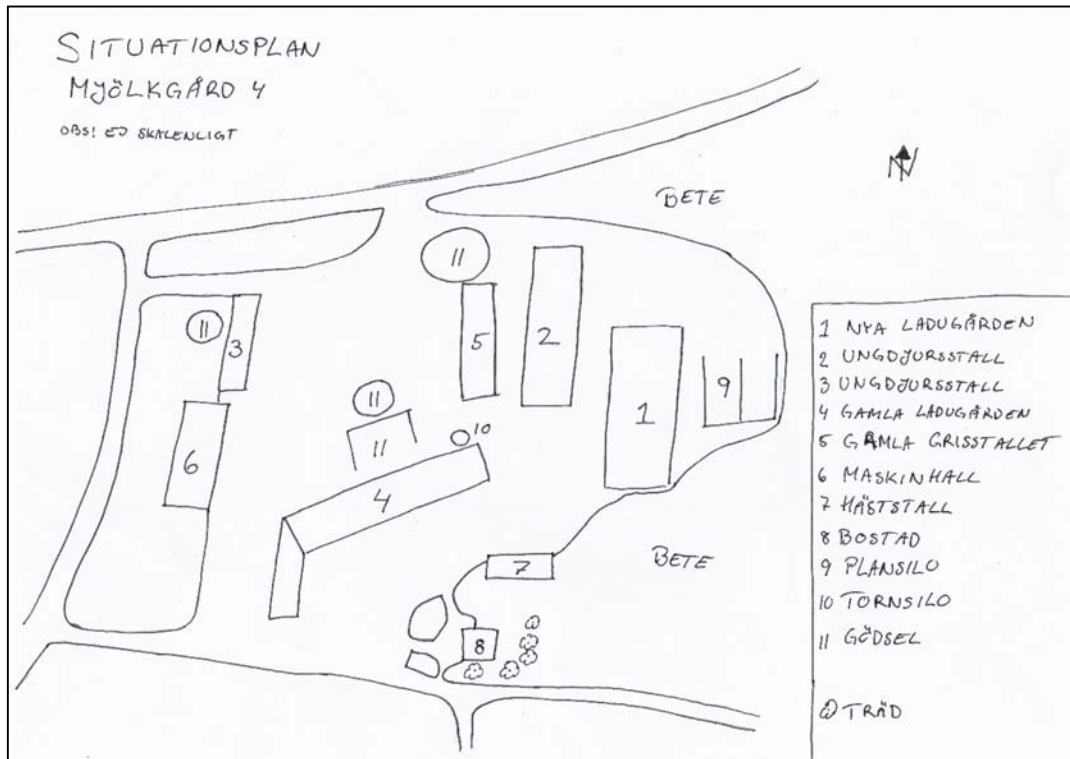 SITUATIONSPLAN
MJÖLKGÅRD 4
OBS! EJ SKALENLIGT
N
BETE
11
11
3
5
2
9
1
11
11
10
6
4
BETE
7
8
1 NYA LADUGÅRDEN
2 UNGDJURSSTALL
3 UNGDJURSSTALL
4 GAMLA LADUGÅRDEN
5 GAMLA GRISSTALLET
6 MASKINHALL
7 HÄSTSTALL
8 BOSTAD
9 PLANSILO
10 TORNSILO
11 GÖDSEL
TRÄD